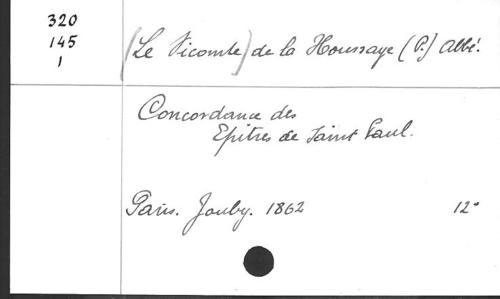 320
145
1
(Le Vicomte) de la Houssaye (P.) Abbé.
Concordance des
Epitres de Saint Paul.
Paris. Jouby. 1862 12°